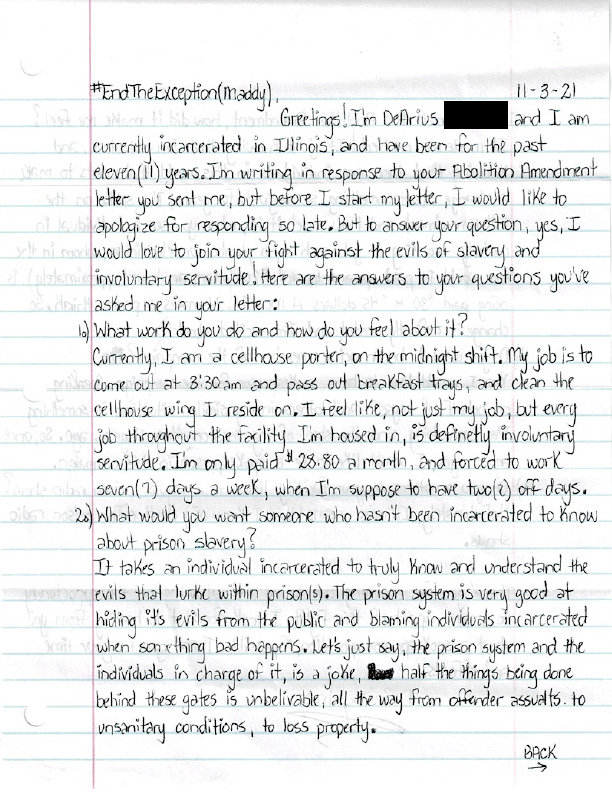 #EndTheException(Maddy),
11-3-21
Greetings! I'm DeArius and I am
currently incarcerated in Illinois, and have been for the past
eleven(11) years. I'm writing in response to your Abolition Amendment
letter you sent me, but before I start my letter, I would like to
apologize for responding so late. But to answer your question, yes, I
would love to join your fight against the evils of slavery and
involuntary servitude! Here are the answers to your questions you've
asked me in your letter:
1.) What work do you do and how do you feel about it?
Currently, I am a cellhouse porter, on the midnight shift. My job is to
come out at 3:30 am and pass out breakfast trays, and clean the
cellhouse wing I reside on. I feel like, not just my job, but every
job throughout the facility I'm housed in, is definetly involuntary
servitude. I'm only paid $28.80 a month, and forced to work
seven(7) days a week, when I'm suppose to have two(2) off days.
2.) What would you want someone who hasn't been incarcerated to know
about prison slavery?
It takes an individual incarcerated to truly know and understand the
evils that lurke within prison(s). The prison system is very good at
hiding it's evils from the public and blaming individuals incarcerated
when something bad happens. Let's just say, the prison system and the
individuals in charge of it, is a joke, half the things being done
behind these gates is unbelivable, all the way from offender assualts. to
unsanitary conditions, to loss property.
BACK
→